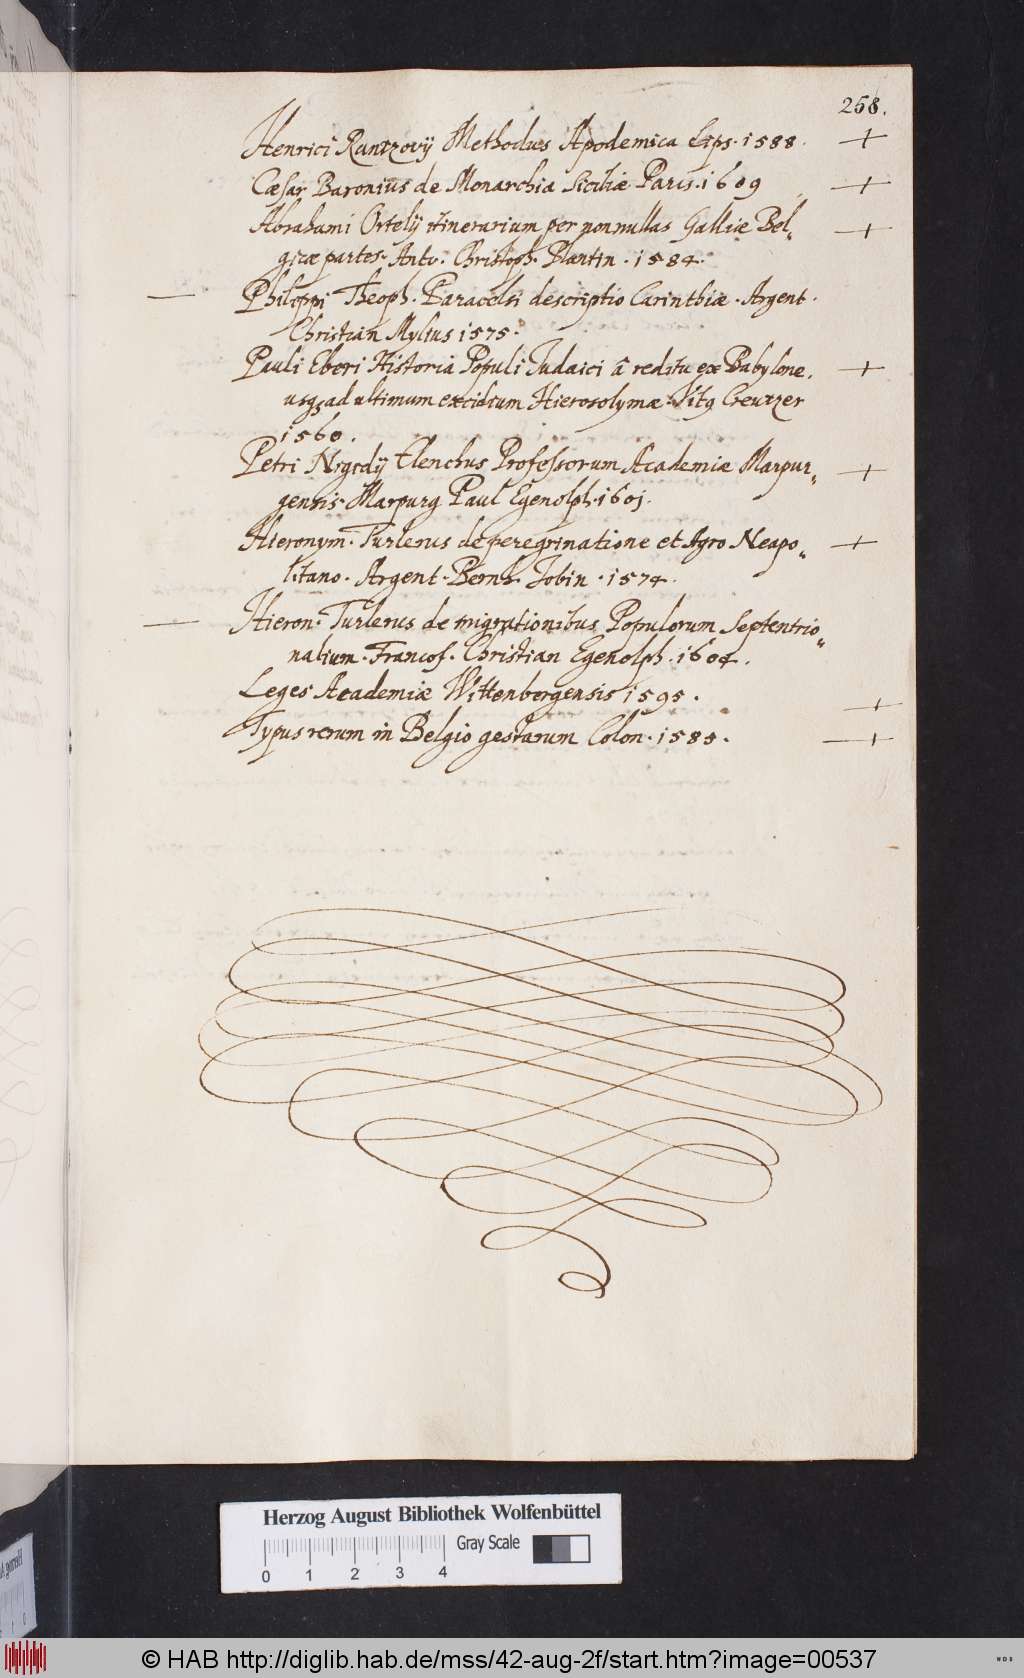 258.
Henrici Rantzovij Methodus Apodemica Lips. 1588.
Cæsar Baronius de Monarchia Siciliæ Paris. 1609
Abrahami Ortelij itinerarium per nonnullas Galliæ Bel„
gicæ partes. Antv. Christoph. Plantin. 1584.
Philippi Theoph. Paracelsi descriptio Carinthiæ. Argent.
Christian Mylius 1575.
Pauli Eberi Historia Populi Judaici â reditu ex Babylone.
usq; ad ultimum excidium Hierosolymæ. Creutzer
1560.
Petri Nigidij Elenchus Professorum Academiæ Marpur„
gensis Marpurg Paul Egenolph. 1601.
Hieronym. Turlerus de peregrinatione et Agro Neapo„
litano. Argent. Bernh. Jobin. 1574.
Hieron. Turlerus de migrationibus Populorum Septentrio„
nalium. Francof. Christian Egenolph. 1604.
Leges Academiæ Wittenbergensis 1595.
Typus rerum in Belgio gestarum Colon. 1585.
Herzog August Bibliothek Wolfenbüttel
Gray Scale
0 1 2 3 4
© HAB http://diglib.hab.de/mss/42-aug-2f/start.htm?image=00537